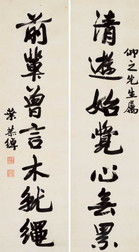 仰之先生屬
清遊始覺心無累
前輩曾言木就繩
葉恭綽